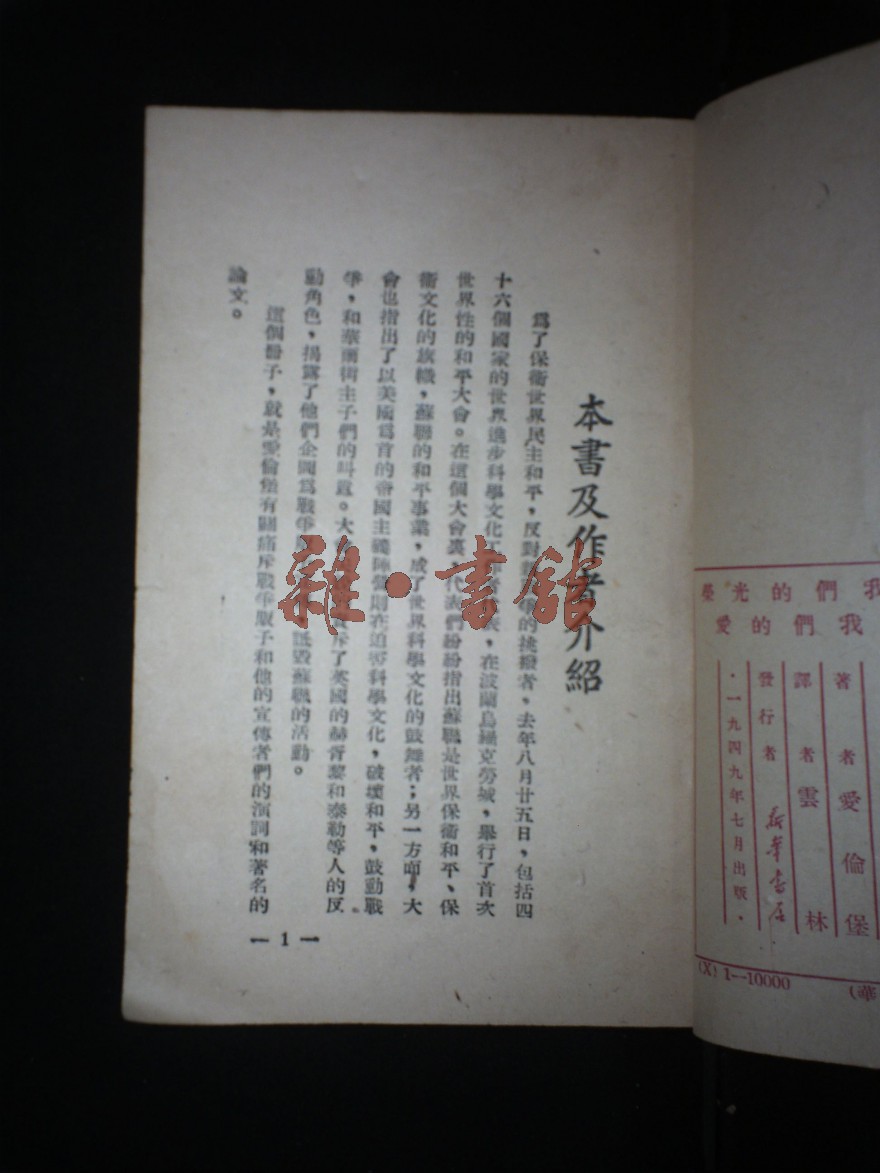 我們的光榮
我們的愛
著者愛倫堡
譯者雲林
發行者 新華書店
·一九四九年七月出版·
(X) 1—10000
本書及作者介紹
爲了保衛世界民主和平,反對的挑撥者,去年八月廿五日,包括四
十六個國家的世界進步科學文化工,在波蘭烏羅克勞城,舉行了首次
世界性的和平大會。在這個大會裏,代表們紛紛指出蘇聯是世界保衛和平、保
衛文化的旗幟,蘇聯的和平事業,成了世界科學文化的鼓舞者;另一方面,大
會也指出了以美國爲首的帝國主義陣營則在迫害科學文化,破壞和平,鼓動戰
爭,和華爾街主子們的叫囂。大斥了英國的赫胥黎和泰勒等人的反
動角色,揭露了他們企圖爲戰爭詆毀蘇聯的活動。
這個冊子,就是愛倫堡有關痛斥戰爭販子和他的宣傳者們的演詞和著名的
論文。
— 1 —
雜·書館